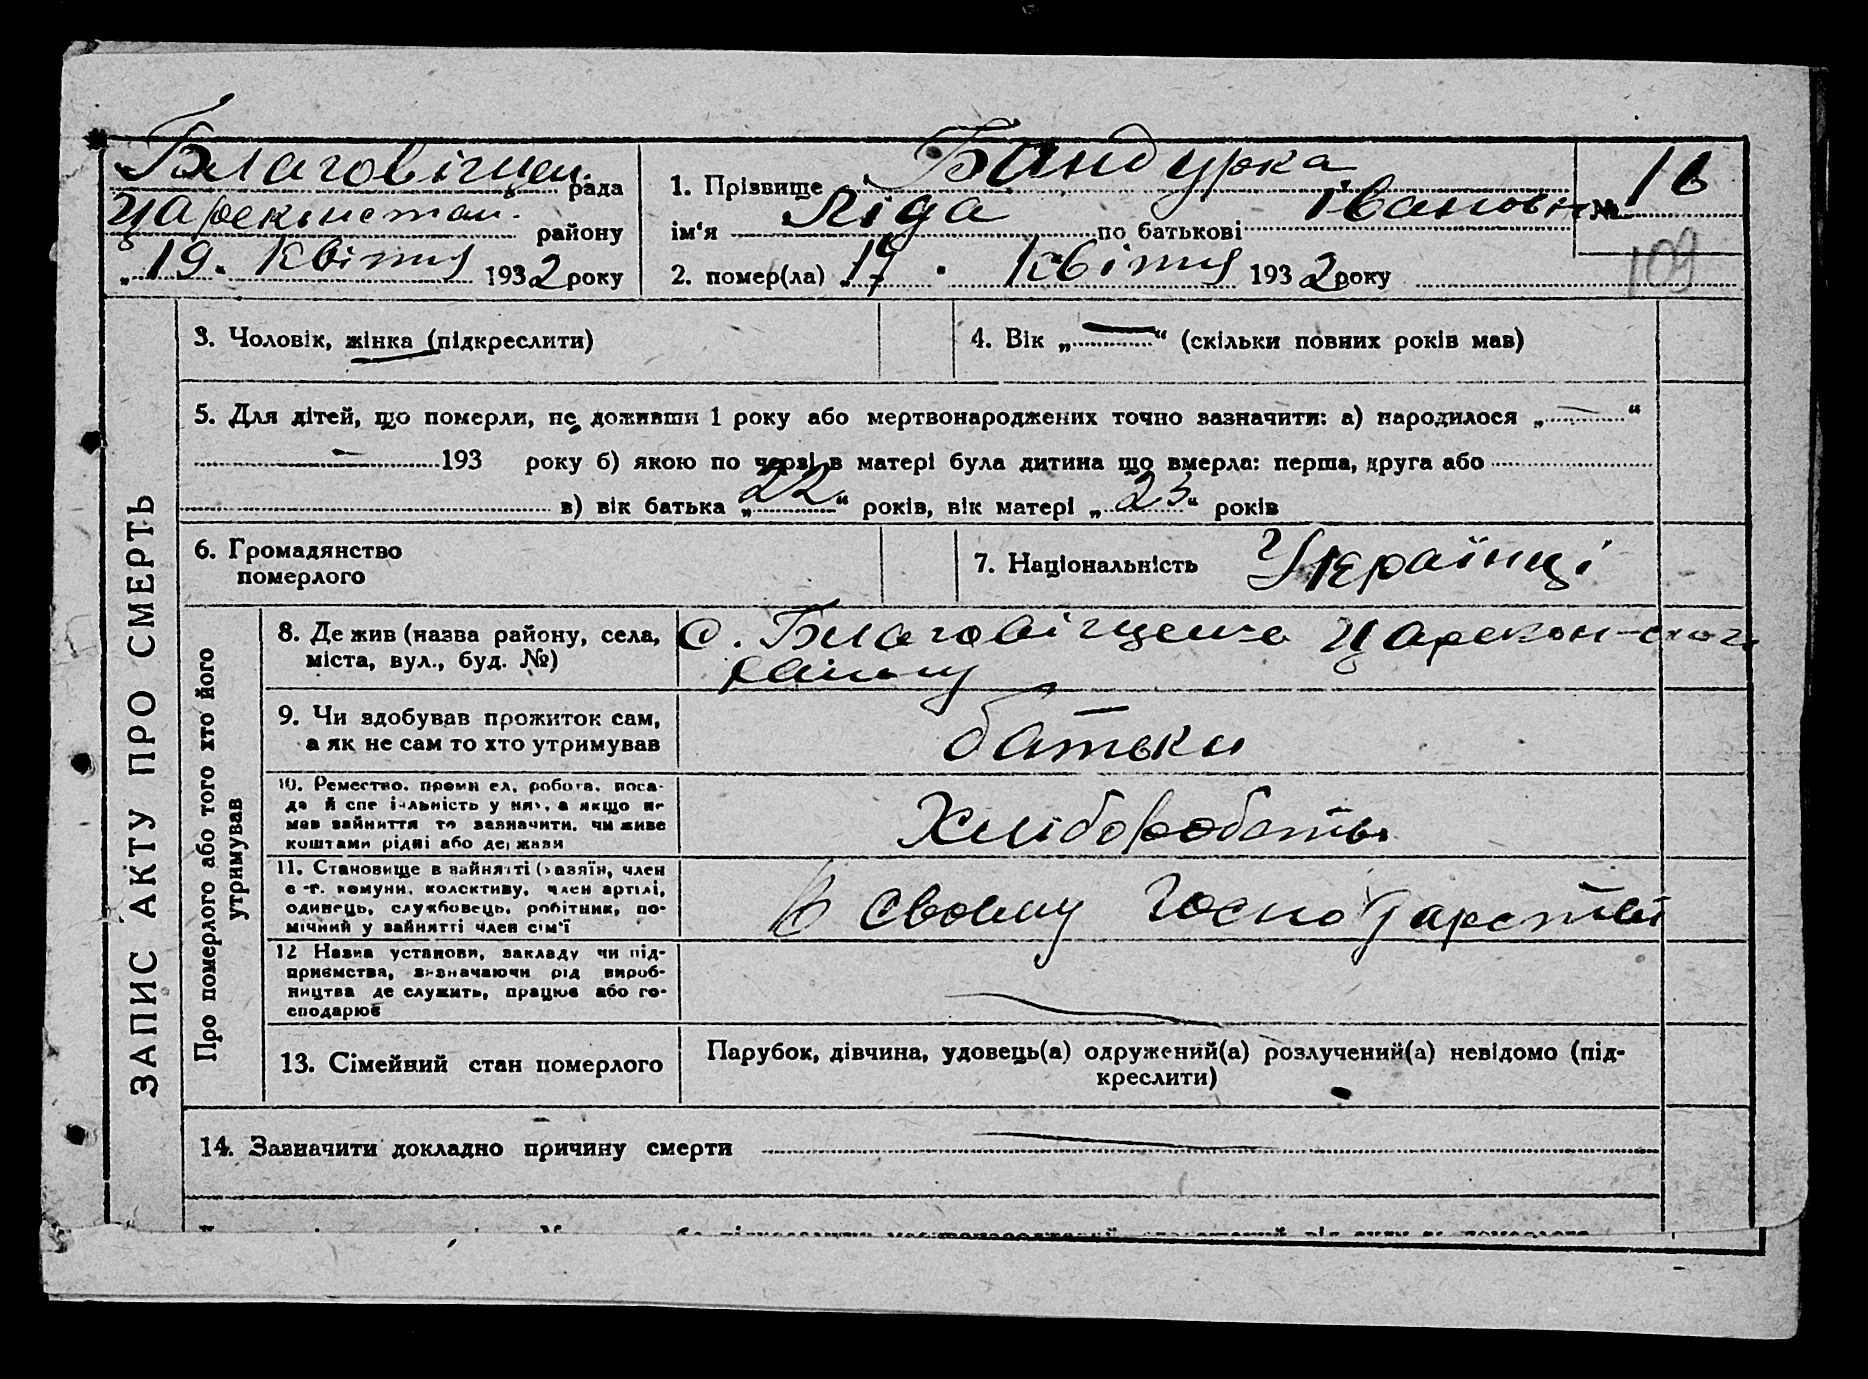 Благовіщен. рада
Царекінстан. району
„19. квітня 1932 року
1. Прізвище Бандурка
ім'я Ліда по батькові Івановн
2. помер(ла) „ квітня 1932 року
№ 16
109
ЗАПИС АКТУ ПРО СМЕРТЬ
3. Чоловік, жінка (підкреслити)
4. Вік „—“ (скільки повних років мав)
5. Для дітей, що померли, не доживши 1 року або мертвонароджених точно зазначити: а) народилося „—“
— 193 року б) якою по черзі в матері була дитина що вмерла: перша, друга або
в) вік батька „22“ років, вік матері „23“ років
6. Громадянство
померлого
7. Національність Українці
Про померлого або того хто його
утримував
8. Де жив (назва району, села,
міста, вул., буд. №)
с. Благовіщенка Царекон-ског
району
9. Чи здобував прожиток сам,
а як не сам то хто утримував
батьки
10. Ремество, промисел, робота, поса-
да й спеціальність у ній, а якщо не
мав зайняття то зазначити, чи живе
коштами рідні або держави
Хліборобать
11. Становище в зайнятті (хазяїн, член
с.-г. комуни, колективу, член артілі,
одинець, службовець, робітник, по-
мічний у зайнятті член сім'ї
В своему господарстві
12 Назва установи, закладу чи під-
приємства, визначаючи рід вироб-
ництва де служить, працює або го-
сподарює
—
13. Сімейний стан померлого
Парубок, дівчина, удовець(а) одружений(а) розлучений(а) невідомо (під-
креслити)
14. Зазначити докладно причину смерти —